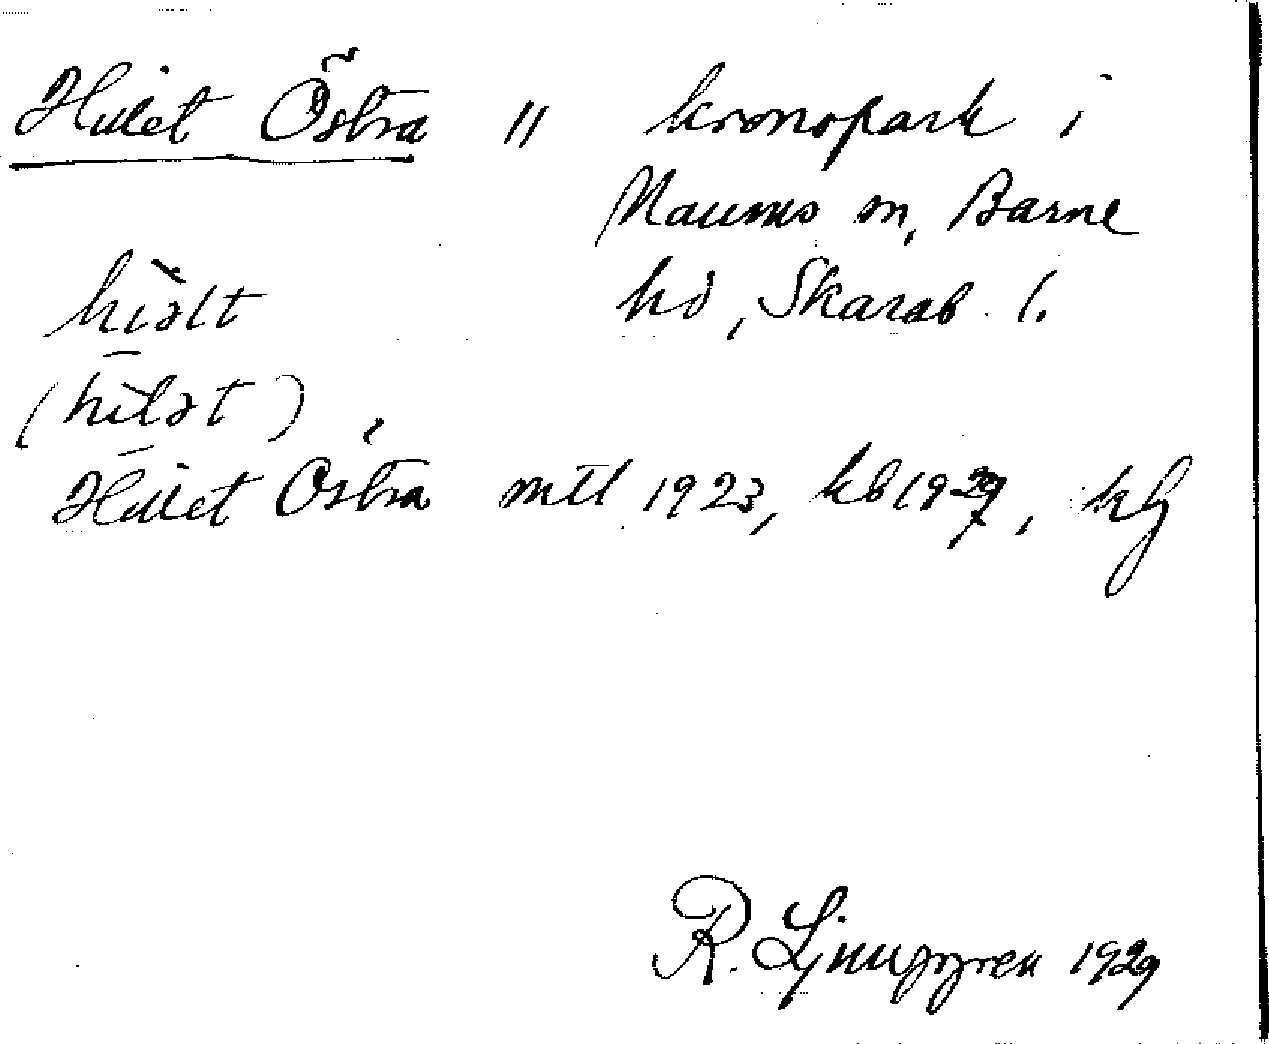 Hulet Östra " kronopark i
Naums sn, Barne
hd, Skarab. l.
hìəlt
(hìlət)
Hulet Östra mtl 1923, kb 1929, hfl
R. Ljunggren 1929